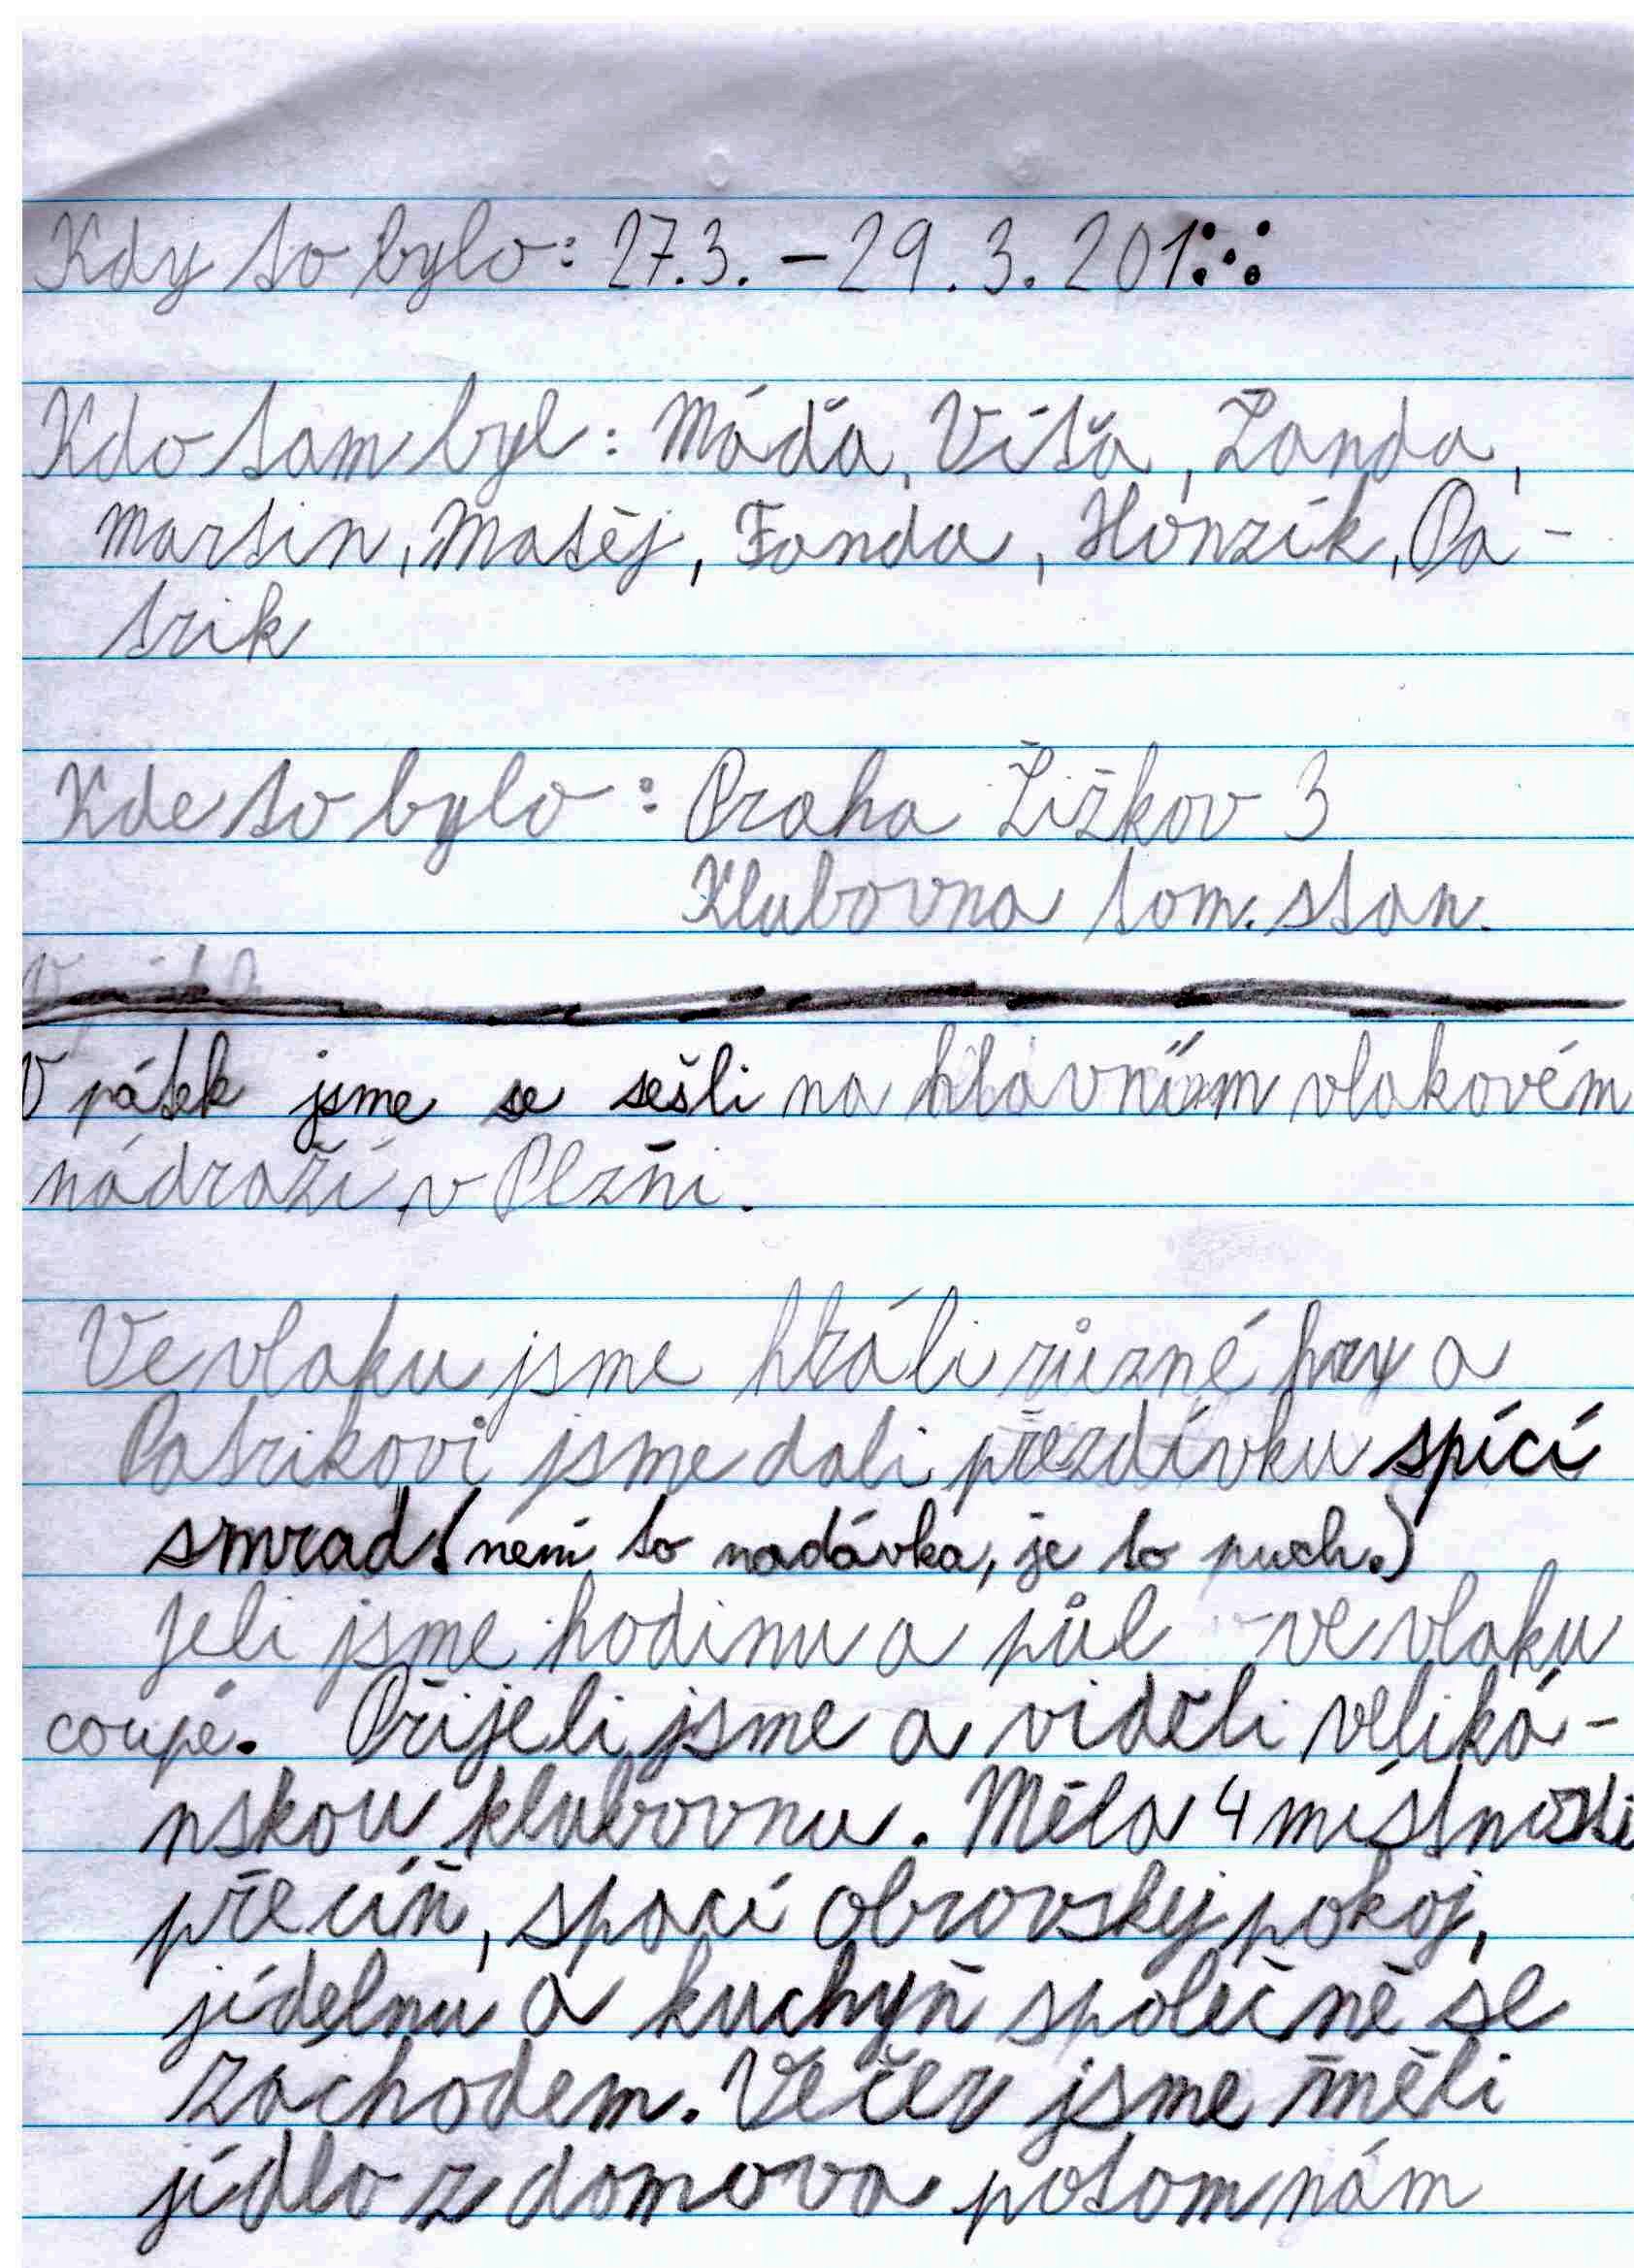 Kdy to bylo: 27.3. - 29.3. 201
Kdo tam byl: Máďa, Víťa, Žanda,
Martin, Matěj, Fonda, Honzík, Pa-
trik
Kde to bylo: Praha Žižkov 3
Klubovna tom. stan.
V pátek jsme se sešli na hlavním vlakovém
nádraží v Plzni.
Ve vlaku jsme hráli různé hry a
Patrikovi jsme dali přezdívku spící
smrad! (není to nadávka, je to puch.)
Jeli jsme hodinu a půl ve vlaku
coupé. Přijeli jsme a viděli veliká-
nskou klubovnu. Měla 4 místnosti
přecíň, spací obrovský pokoj,
jídelnu a kuchyň společně se
záchodem. Večer jsme měli
jídlo z domova potom nám